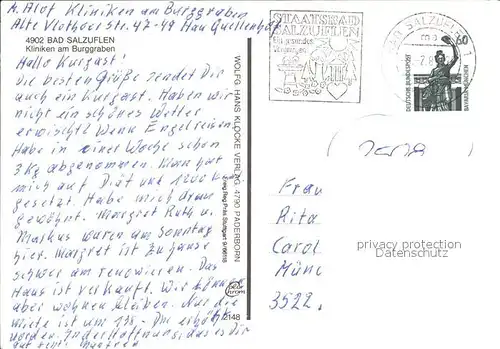 A. Alof Kliniken am Burggraben
Alte Vlothoer Str. 47-49 Haus Quellenhof
4902 BAD SALZUFLEN
Kliniken am Burggraben
Hallo Kurgast!
die besten Grüße sendet Dir
auch ein Kurgast. Haben wir
nicht ein schönes Wetter
erwischt? Wenn Engel reisen.
Habe in einer Woche schon
3 Kg abgenommen. Man hat
mich auf Diät und 1200
gesetzt. Habe mich dran
gewöhnt. Margret Ruth u.
Markus waren am Sonntag
hier. Margret ist zu Hause
schwer am renovieren. Das
Haus ist verkauft. Wir können
aber wohnen bleiben. Nur die
Miete ist um 138,- Dm erhöht
worden. In der Hoffnung, das es Dir
gut geht! Manfred
WOLFG. HANS KLOCKE VERLAG 4790 PADERBORN
STAATSBAD
SALZUFLEN
BAD SALZUFLEN 1
60
DEUTSCHE BUNDESPOST
BAVARIA MÜNCHEN
Frau
Rita
Carol
3522
privacy protection
Datenschutz
2148